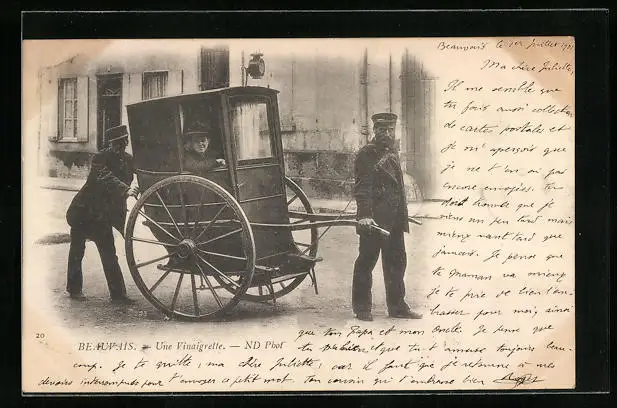 Beauvais le 1er Juillet 1901
Ma chère Juliette,
Il me semble que
tu fais aussi collection
de cartes postales et
je m'aperçois que
je ne t'en ai pas
encore envoyées. Tu
dois trouver que je
viens un peu tard mais
mieux vaut tard que
jamais. Je pense que
ta Maman va mieux
je te prie de bien l'em-
brasser pour moi, ainsi
que ton Papa et mon Oncle. Je pense que
20
BEAUVAIS. — Une Vinaigrette. — ND Phot
et que tu t'amuse toujours beau-
coup. Je te quitte, ma chère Juliette, car il faut que je retourne à mes
devoirs interrompus pour t'envoyer ce petit mot. Ton cousin qui t'embrasse bien